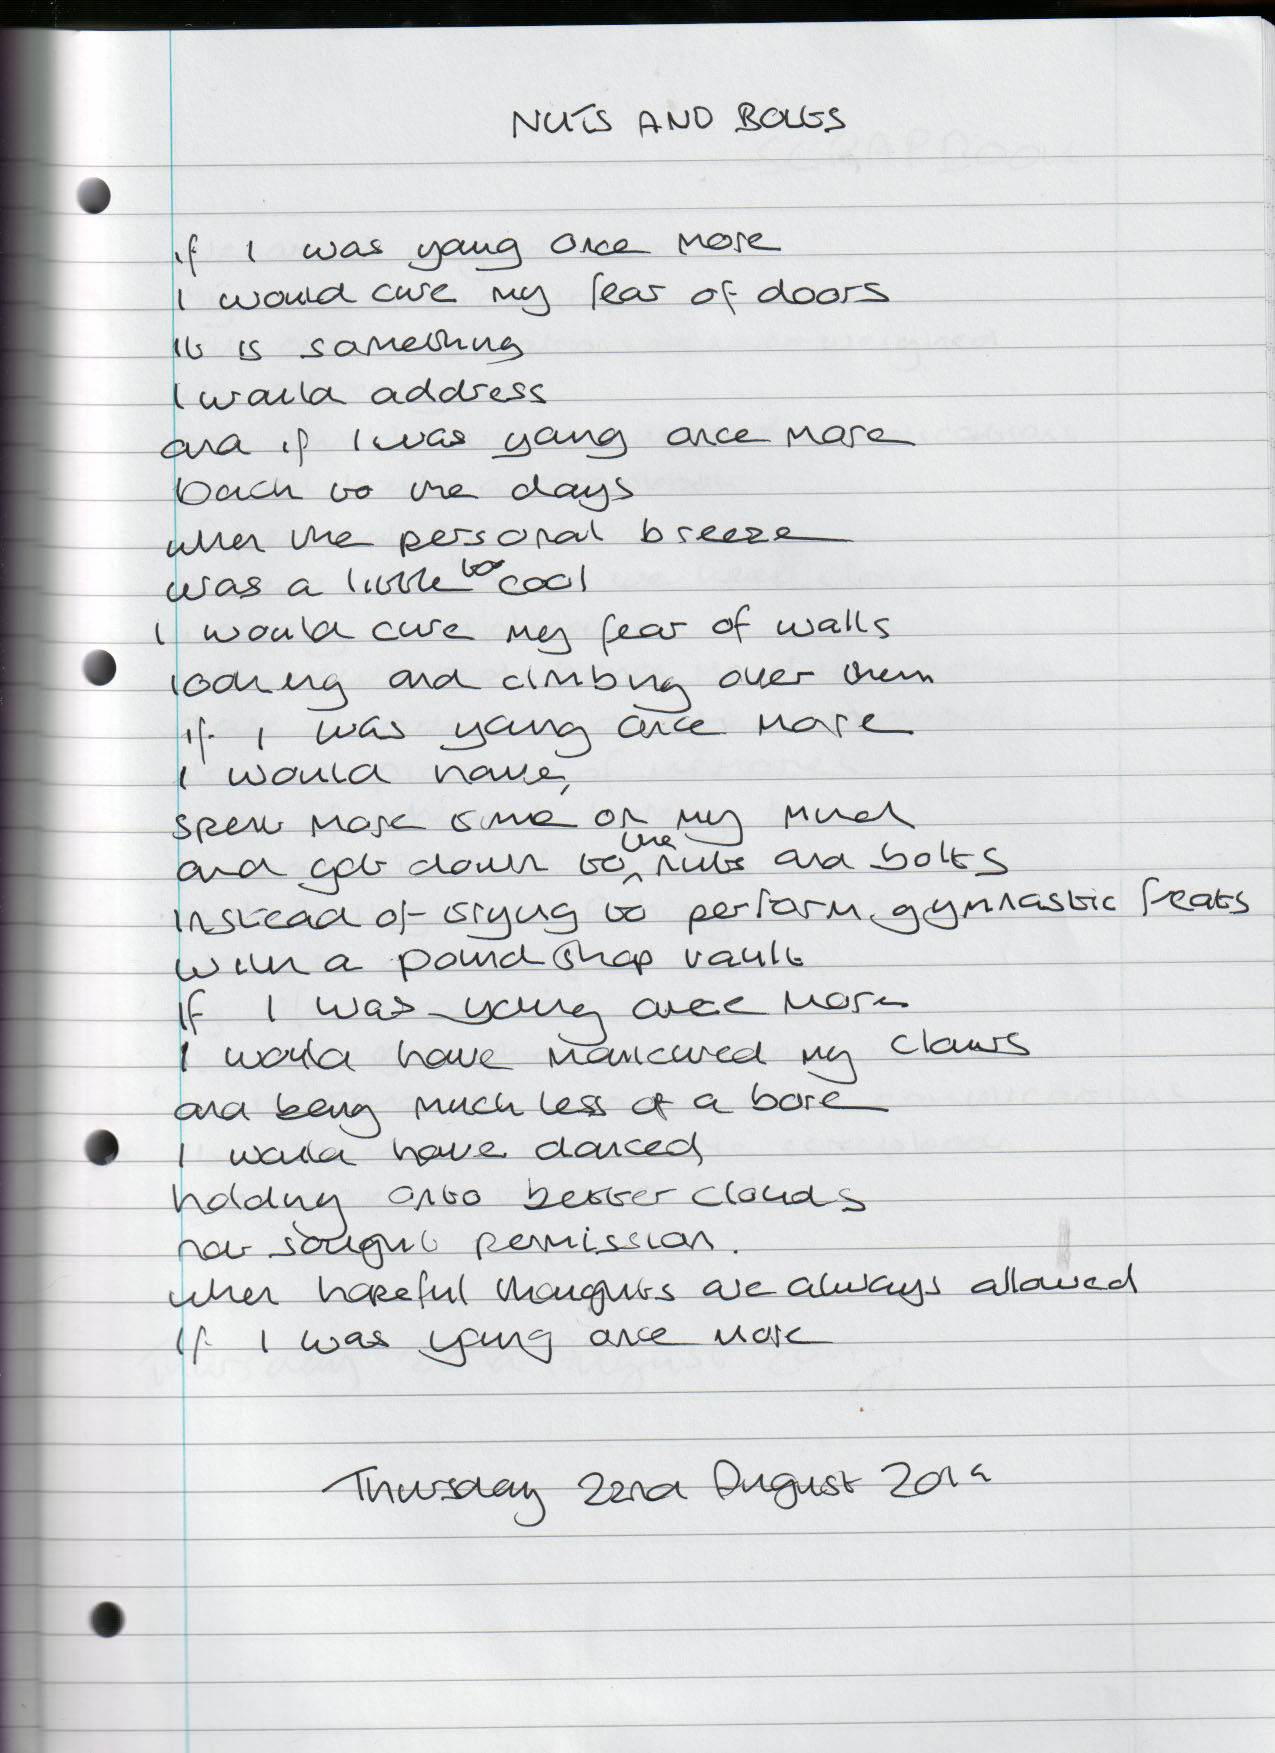 NUTS AND BOLTS
if I was young once more
I would cure my fear of doors
it is something
I would address
and if I was young once more
back to the days
when the personal breeze
was a little too cool
I would cure my fear of walls
looking and climbing over them
if I was young once more
I would have,
spent more time on my mind
and got down to the nuts and bolts
instead of trying to perform gymnastic feats
with a pound shop vault
If I was young once more
I would have manicured my claws
and being much less of a bore
I would have danced
holding onto better clouds
not sought permission.
when hopeful thoughts are always allowed
If I was young once more
Thursday 22nd August 2019